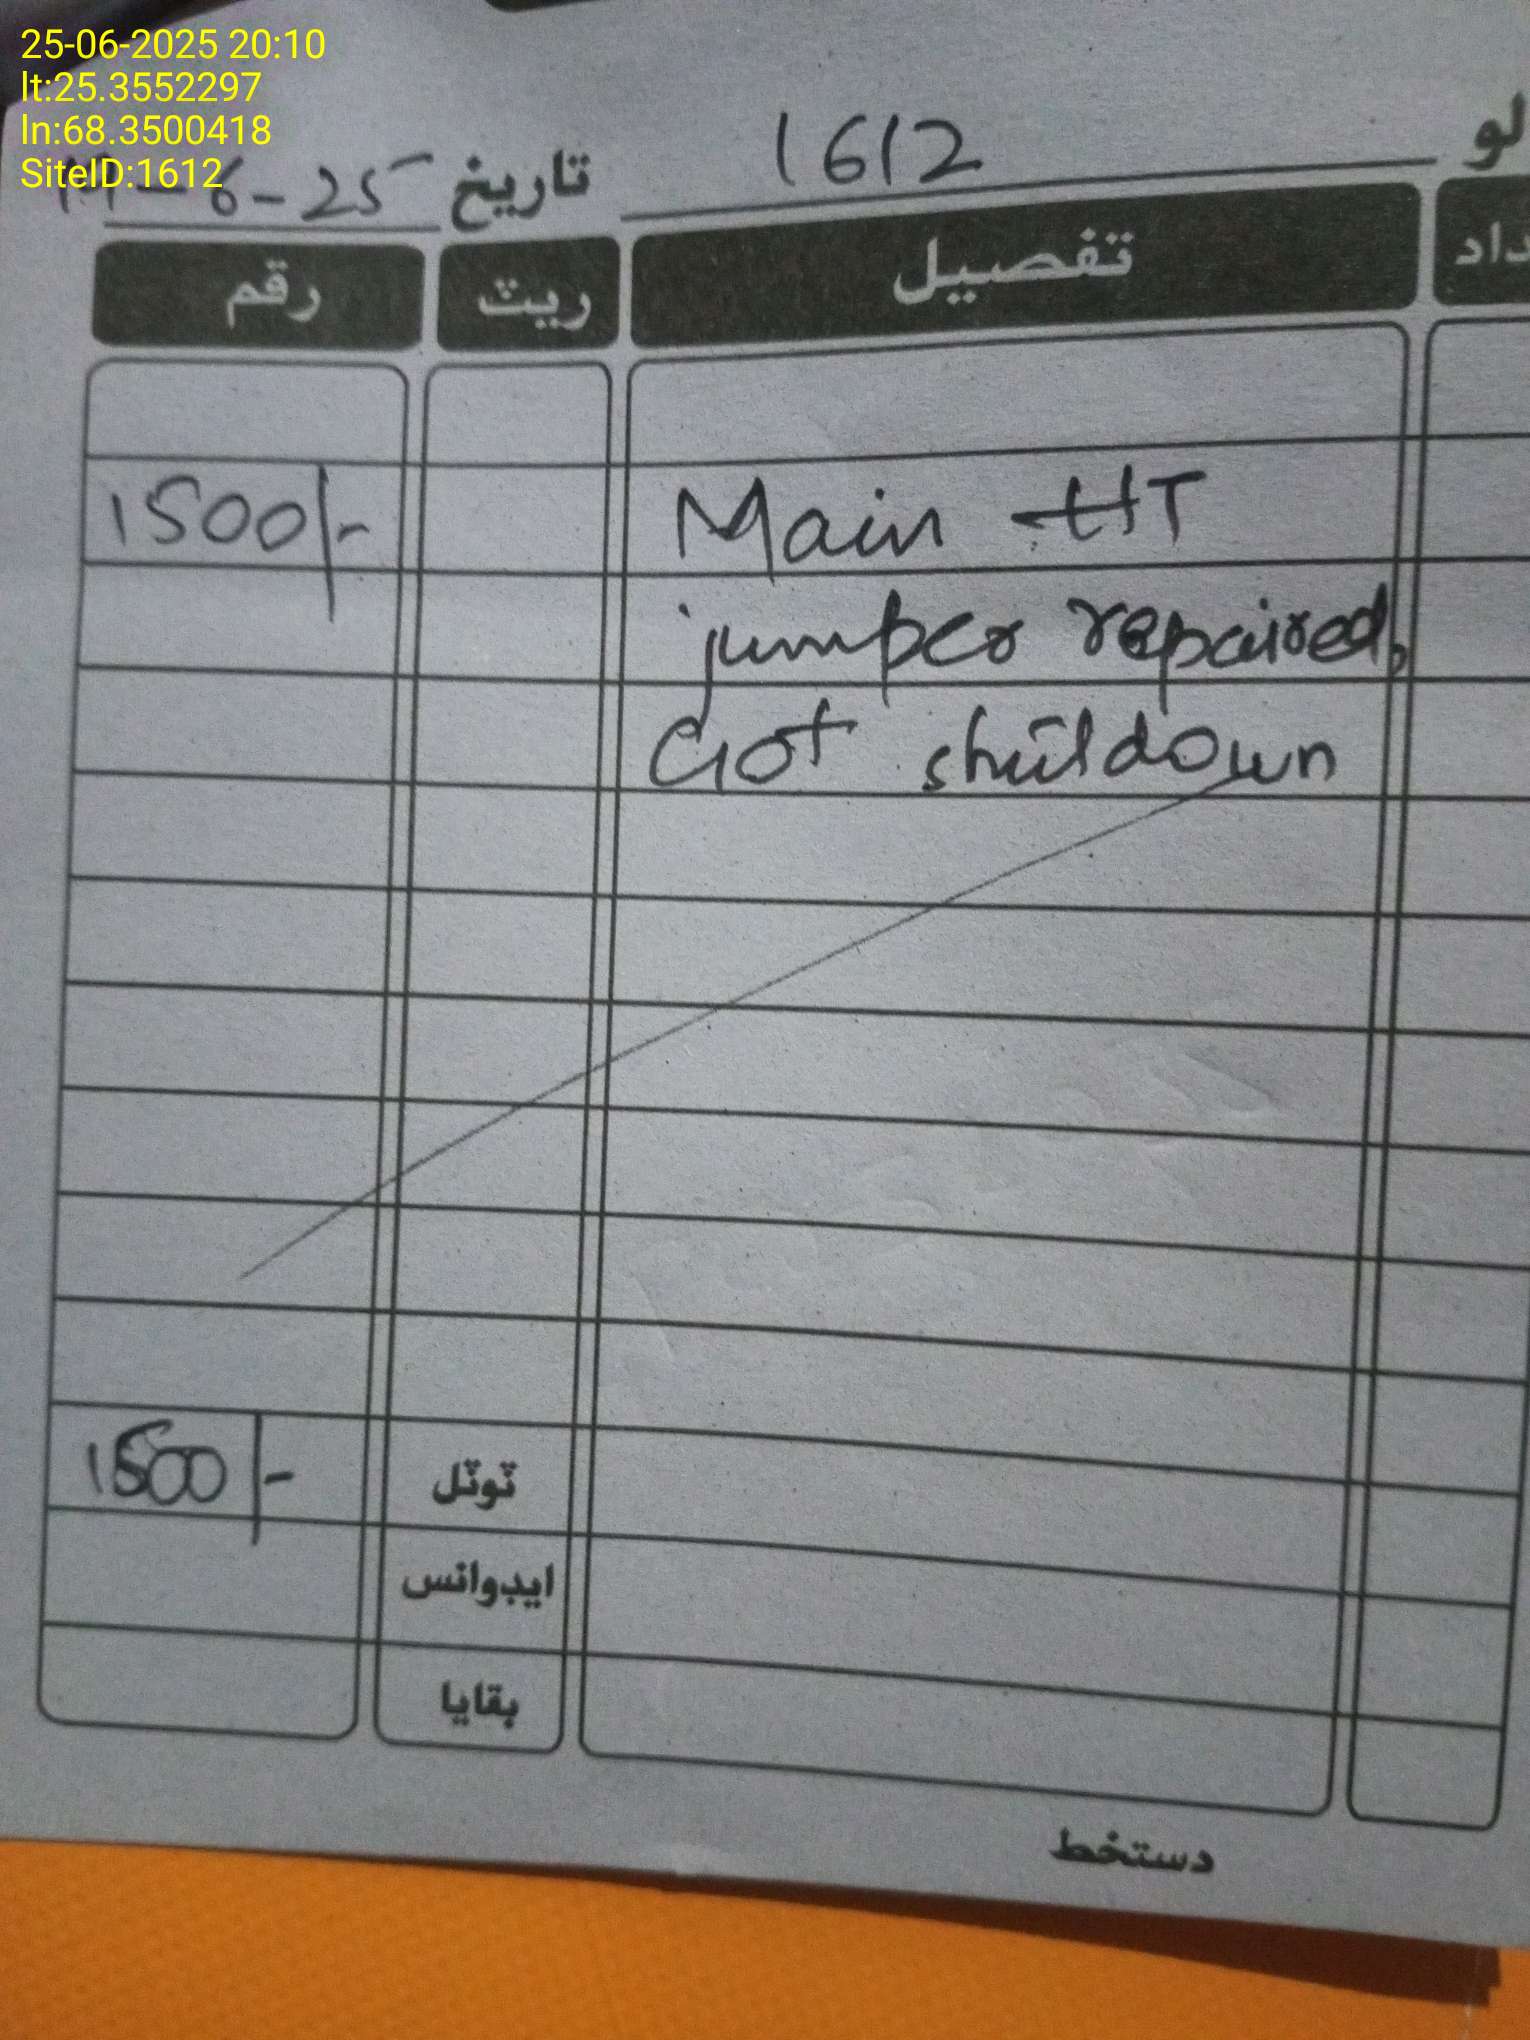 25-06-2025 20:10
lt:25.3552297
ln:68.3500418
SiteID:1612
1612
تاریخ -6-25
تفصیل ریٹ رقم
Main HT 1500/-
jumper repaired,
Got shutdown
ٹوٹل 1500/-
ایڈوانس
بقایا
دستخط